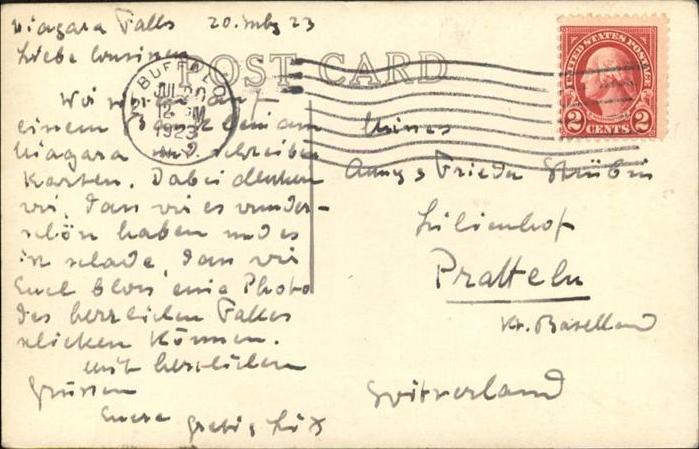 Niagara Falls 20. July 23
Liebe Cousinen
POST CARD
BUFFALO
JUL 20
12 M
1923
N.Y.
UNITED STATES POSTAGE
2 CENTS 2
Wir
einem
Niagara und schreiben
Karten. Dabei denken
wir, dass wir es wunder-
schön haben und es
ist schade, dass wir
Euch bloss eine Photo
des herrlichen Falles
schicken können.
Mit herzlichen
Grüssen
Euere
Anny & Frieda Stübin
Lilienhof
Pratteln
Kt. Baselland
Switzerland